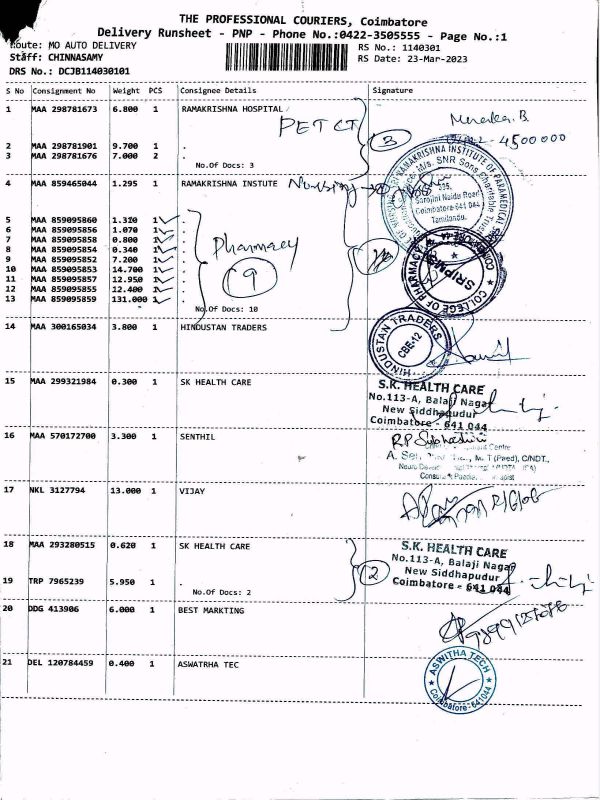 THE PROFESSIONAL COURIERS, Coimbatore
Delivery Runsheet - PNP - Phone No.:0422-3505555 - Page No.:1
Route: MO AUTO DELIVERY
RS No.: 1140301
Staff: CHINNASAMY
RS Date: 23-Mar-2023
DRS No.: DCJB114030101
S No Consignment No Weight PCS Consignee Details Signature
1 MAA 298781673 6.800 1 RAMAKRISHNA HOSPITAL
PET CT
3
4500000
2 MAA 298781901 9.700 1 .
3 MAA 298781676 7.000 2 .
No.Of Docs: 3
4 MAA 859465044 1.295 1 RAMAKRISHNA INSTUTE Nursing
Sarojini Naidu Road
Coimbatore-641 044
Tamilnadu.
5 MAA 859095860 1.310 1 .
6 MAA 859095856 1.070 1 .
7 MAA 859095858 0.800 1 .
8 MAA 859095854 0.340 1 .
9 MAA 859095852 7.200 1 .
10 MAA 859095853 14.700 1 .
11 MAA 859095857 12.950 1 .
12 MAA 859095855 12.400 1 .
13 MAA 859095859 131.000 1 .
Pharmacy
9
COLLEGE OF PHARMACY
SRIPMS
No.Of Docs: 10
14 MAA 300165034 3.800 1 HINDUSTAN TRADERS
HINDUSTAN TRADERS
CBE-12
15 MAA 299321984 0.300 1 SK HEALTH CARE
S.K. HEALTH CARE
No.113-A, Balaji Nagar
New Siddhapudur
Coimbatore - 641 044
16 MAA 570172700 3.300 1 SENTHIL
17 NKL 3127794 13.000 1 VIJAY
18 MAA 293280515 0.620 1 SK HEALTH CARE
2
S.K. HEALTH CARE
No.113-A, Balaji Nagar
New Siddhapudur
Coimbatore - 641 044
19 TRP 7965239 5.950 1 .
No.Of Docs: 2
20 DDG 413906 6.000 1 BEST MARKTING
21 DEL 120784459 0.400 1 ASWATRHA TEC
ASWITHA TECH
Coimbatore-641044